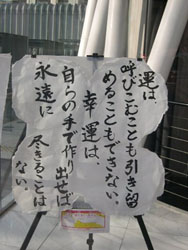 運は、
呼びこむことも引き留
めることもできない、
幸運は、
自らの手で作り出せば
永遠に
尽きることは
ない。